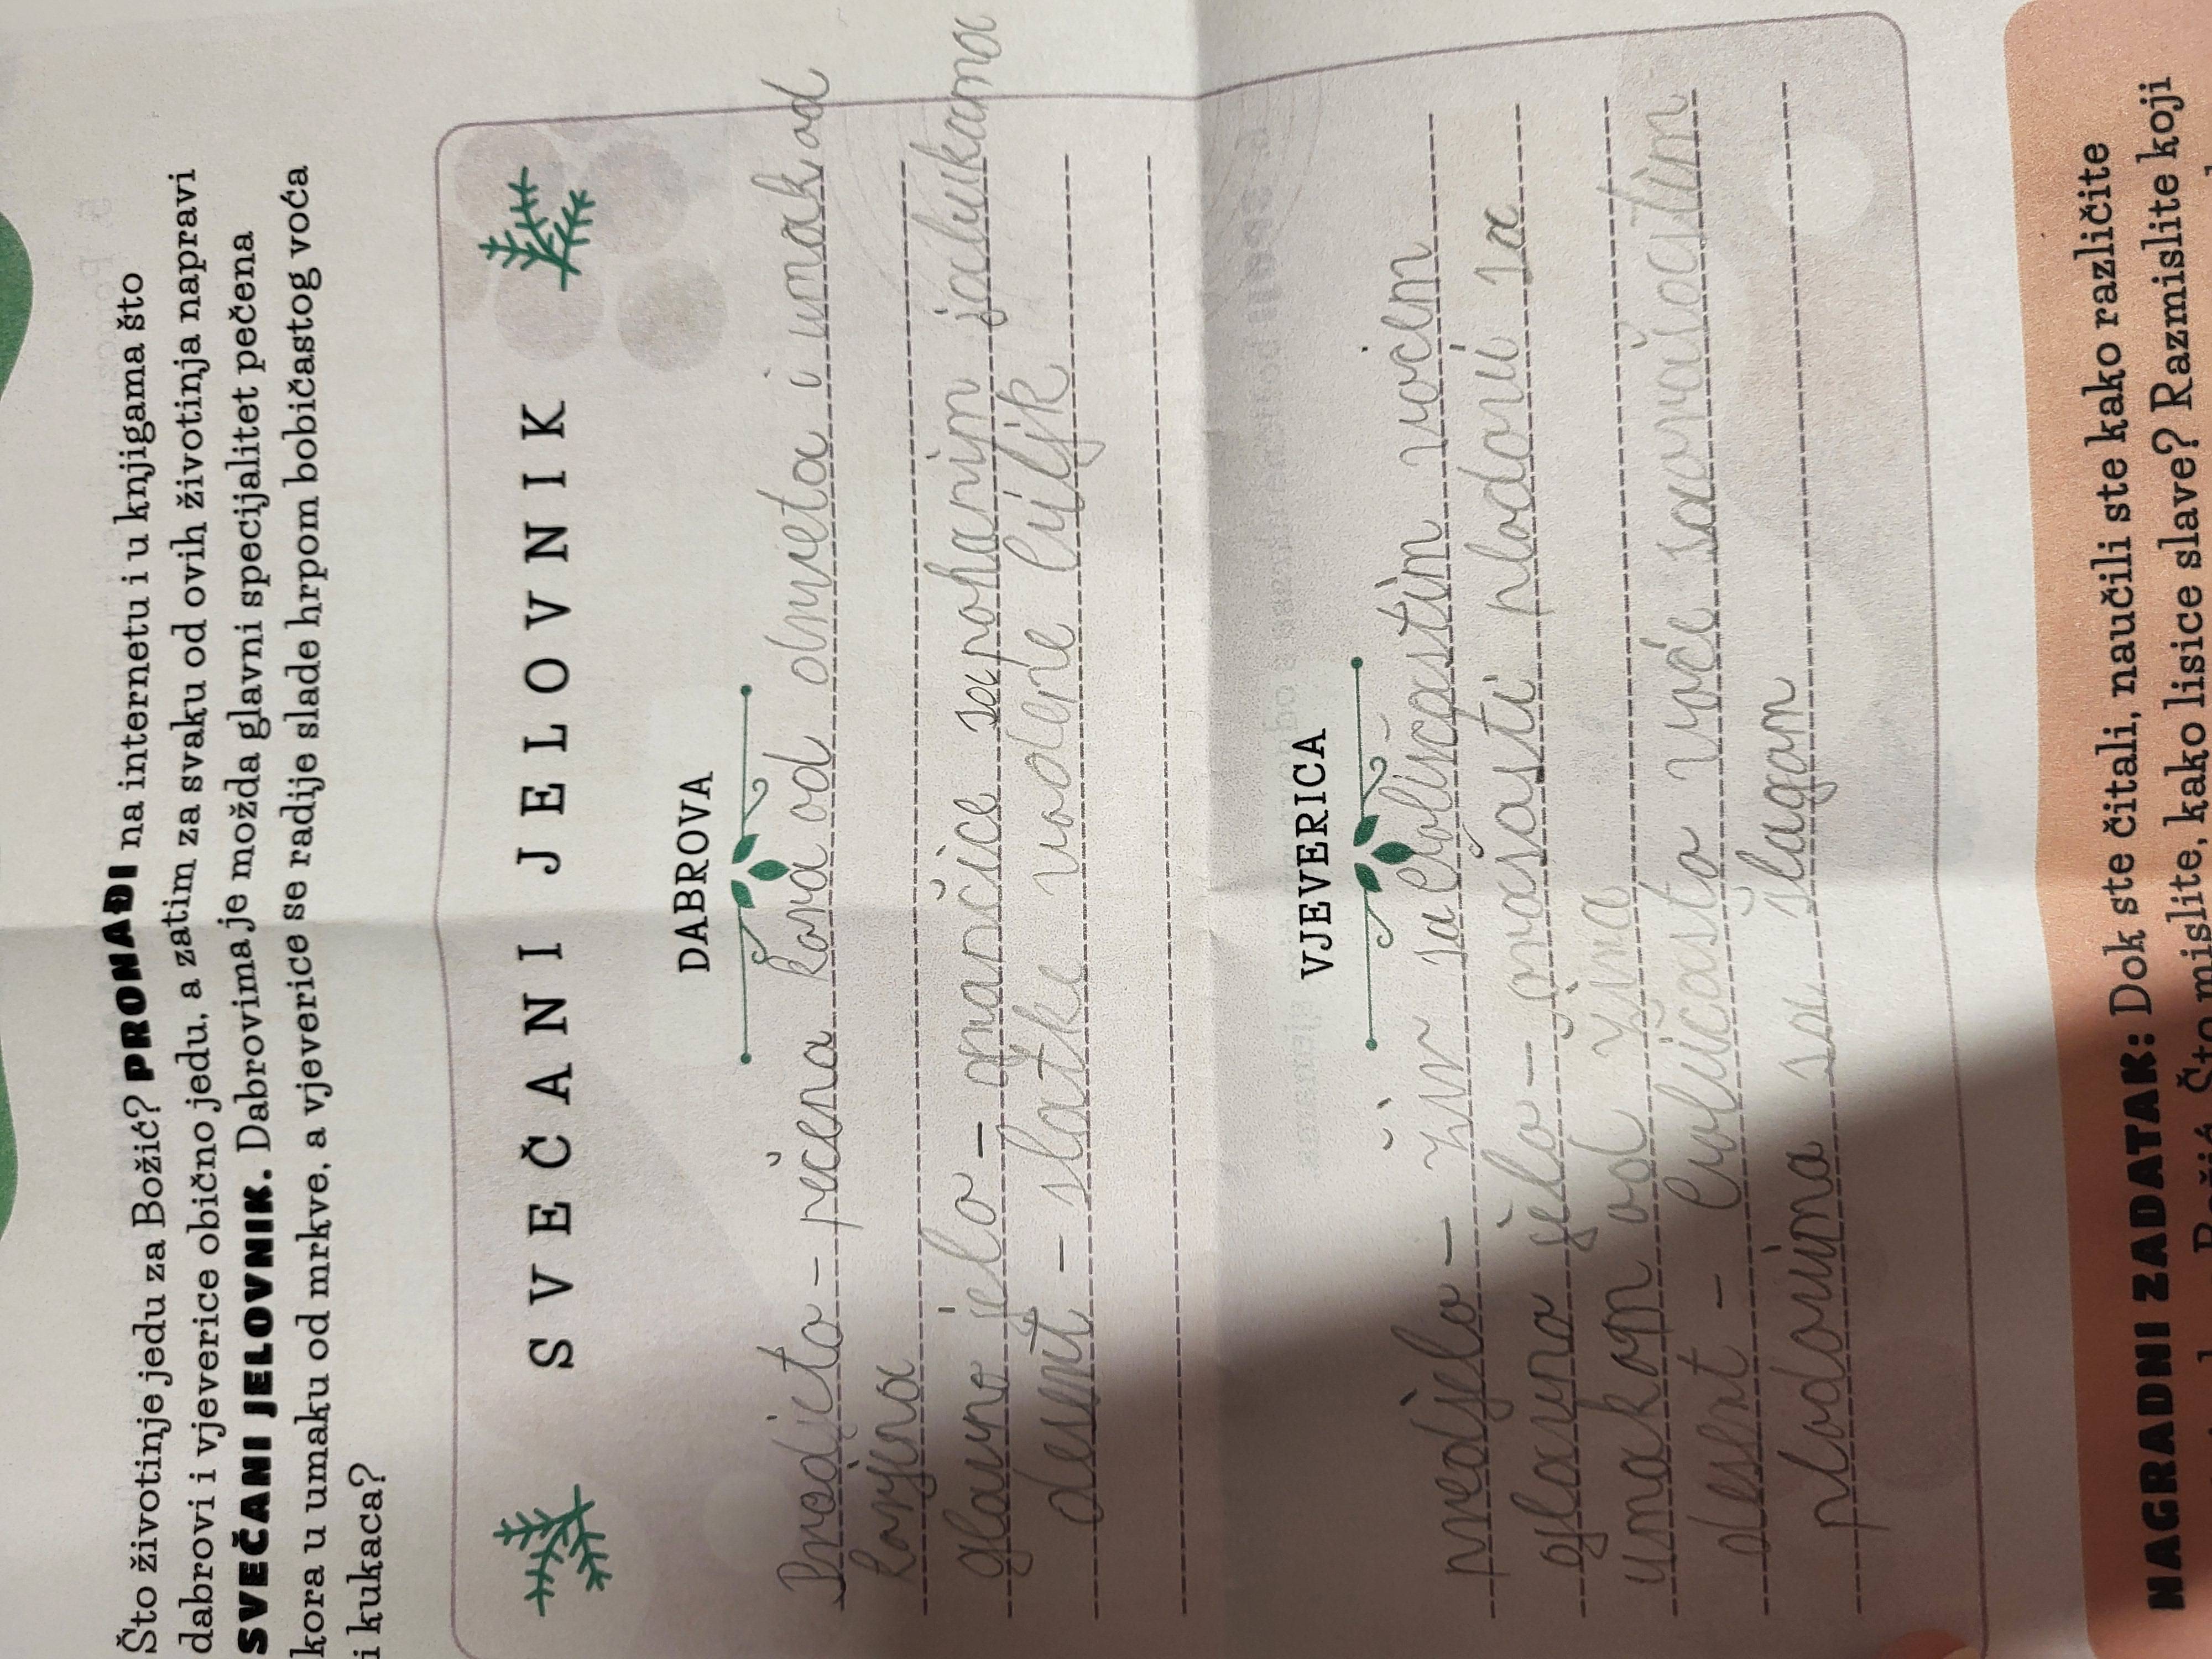 Što životinje jedu za Božić? PRONAĐI na internetu i u knjigama što
dabrovi i vjeverice obično jedu, a zatim za svaku od ovih životinja napravi
SVEČANI JELOVNIK. Dabrovima je možda glavni specijalitet pečena
kora u umaku od mrkve, a vjeverice se radije slade hrpom bobičastog voća
i kukaca?
SVEČANI JELOVNIK
DABROVA
pečena kora od drveta i umak od
korjena
glavno jelo - grančice sa pohanim jabukama
desert - slatke vodene biljk
VJEVERICA
predjelo - žir sa bobičastim voćem
glavno jelo - orašasti plodovi sa
umakom od žira
desert - bobičasto voće sa orašastim
plodovima sa šlagom
NAGRADNI ZADATAK: Dok ste čitali, naučili ste kako različite
mislite, kako lisice slave? Razmislite koji